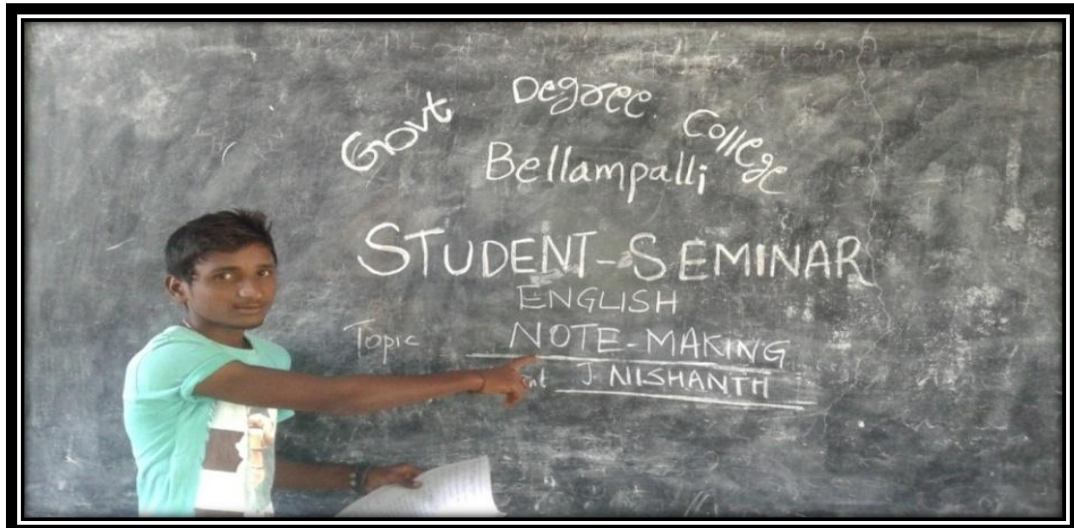 Govt Degree College
Bellampalli
STUDENT-SEMINAR
ENGLISH
Topic NOTE-MAKING
nt J NISHANTH